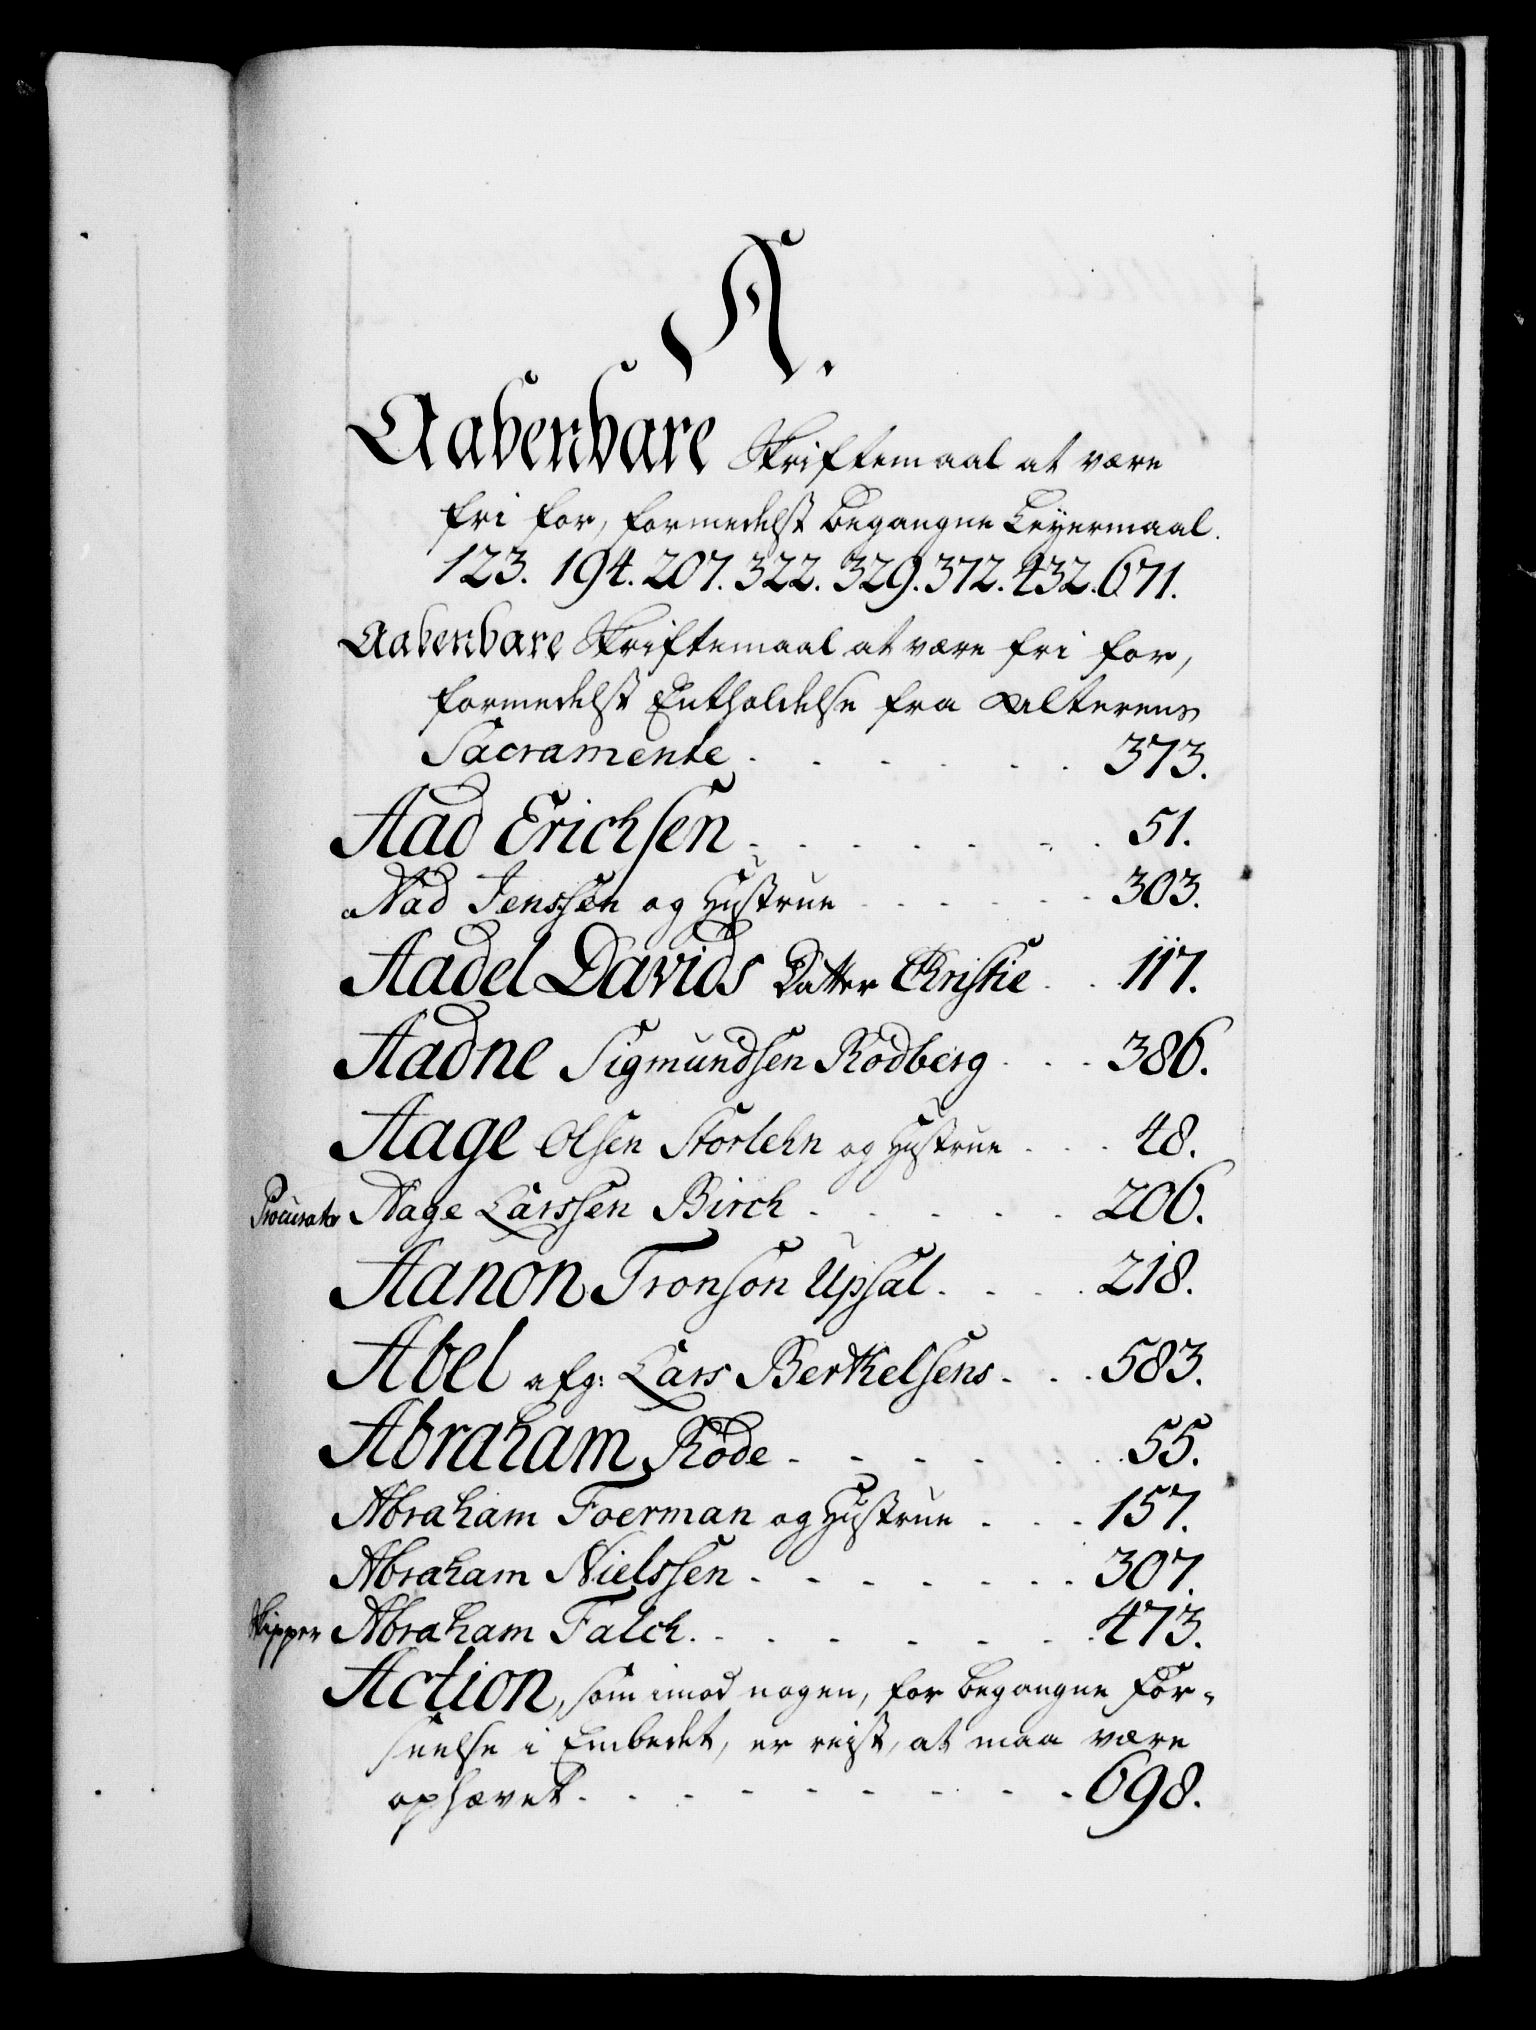 A.
Aabenbare Skriftemaal at være
fri for, formedelst begangne Leyermaal.
123. 194. 207. 322. 329. 372. 432. 671.
Aabenbare Skriftemaal at være fri for,
formedelst Entholdelse fra Alterens
Sacramente . . . . . . 373.
Aad Erichsen . . . . . . 51.
Aad Jenssen og Hustrue . . . . . 303.
Aadel Davids Datter Christie . . 117.
Aadne Sigmundsen Rodberg . . . 386.
Aage Olsen Storlehn og Hustrue . . . 48.
Procurator Aage Larssen Birch . . . . . 206.
Aanon Tronson Upsal . . . . 218.
Abel afg: Lars Berthelsens . . . 583.
Abraham Röde . . . . . . 55.
Abraham Foerman og Hustrue . . . 157.
Abraham Nielssen . . . . . . 307.
Skipper Abraham Falch . . . . . . . 473.
Action, som imod nogen, for begangne For-
seelse i Embedet, er reist, at maa være
ophævet . . . . . . . . 698.